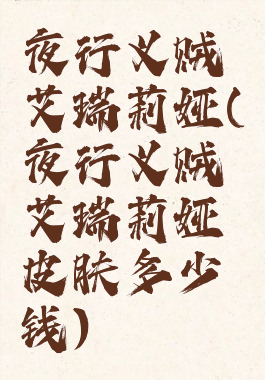 夜行义贼
艾瑞莉娅(
夜行义贼
艾瑞莉娅
皮肤多少
钱)